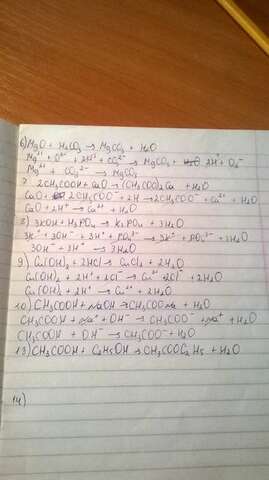 6) MgO + H₂CO₃ → MgCO₃ + H₂O
Mg²⁺ + O²⁻ + 2H⁺ + CO₃²⁻ → MgCO₃ + 2H⁺ + O₂⁻
Mg²⁺ + CO₃²⁻ → MgCO₃
7 2CH₃COOH + CaO → (CH₃COO)₂Ca + H₂O
CaO + 2CH₃COO⁻ + 2H → 2CH₃COO⁻ + Ca²⁺ + H₂O
CaO + 2H⁺ → Ca²⁺ + H₂O
8) 3KOH + H₃PO₄ → K₃PO₄ + 3H₂O
3K⁺ + 3OH⁻ + 3H⁺ + PO₄³⁻ → 3K⁺ + PO₄³⁻ + 3H₂O
3OH⁻ + 3H⁺ → 3H₂O
9) Cu(OH)₂ + 2HCl → CuCl₂ + 2H₂O
Cu(OH)₂ + 2H⁺ + 2Cl⁻ → Cu²⁺ + 2Cl⁻ + 2H₂O
Cu(OH)₂ + 2H⁺ → Cu²⁺ + 2H₂O
10) CH₃COOH + NaOH → CH₃COONa + H₂O
CH₃COOH + Na⁺ + OH⁻ → CH₃COO⁻ + Na⁺ + H₂O
CH₃COOH + OH⁻ → CH₃COO⁻ + H₂O
13) CH₃COOH + C₂H₅OH → CH₃COOC₂H₅ + H₂O
14)